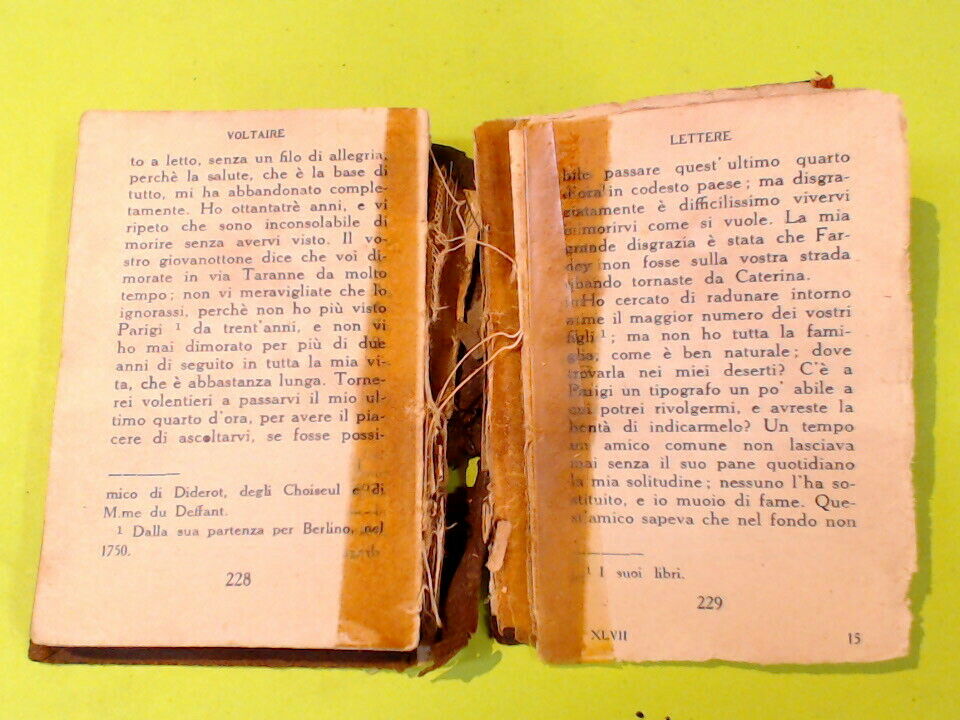 VOLTAIRE
to a letto, senza un filo di allegria,
perchè la salute, che è la base di
tutto, mi ha abbandonato comple-
tamente. Ho ottantatrè anni, e vi
ripeto che sono inconsolabile di
morire senza avervi visto. Il vo-
stro giovanottone dice che voi di-
morate in via Taranne da molto
tempo; non vi meravigliate che lo
ignorassi, perchè non ho più visto
Parigi ¹ da trent'anni, e non vi
ho mai dimorato per più di due
anni di seguito in tutta la mia vi-
ta, che è abbastanza lunga. Torne-
rei volentieri a passarvi il mio ul-
timo quarto d'ora, per avere il pia-
cere di ascoltarvi, se fosse possi-
mico di Diderot, degli Choiseul e di
M.me du Deffant.
¹ Dalla sua partenza per Berlino, nel
1750.
228
LETTERE
bile passare quest'ultimo quarto
d'ora in codesto paese; ma disgra-
ziatamente è difficilissimo vivervi
o morirvi come si vuole. La mia
grande disgrazia è stata che Far-
ney non fosse sulla vostra strada
quando tornaste da Caterina.
Ho cercato di radunare intorno
a me il maggior numero dei vostri
figli ¹; ma non ho tutta la fami-
glia, come è ben naturale; dove
trovarla nei miei deserti? C'è a
Parigi un tipografo un po' abile a
cui potrei rivolgermi, e avreste la
bontà di indicarmelo? Un tempo
un amico comune non lasciava
mai senza il suo pane quotidiano
la mia solitudine; nessuno l'ha so-
stituito, e io muoio di fame. Que-
st'amico sapeva che nel fondo non
¹ I suoi libri.
229
XLVII 15